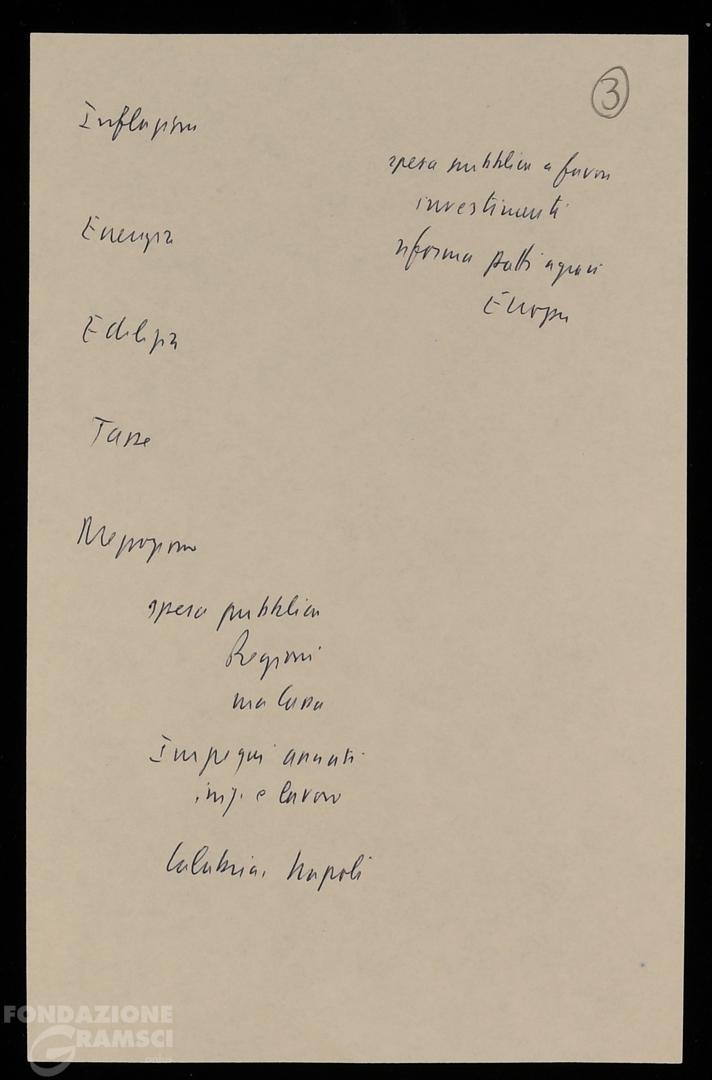 3
Inflazione
spesa pubblica a favore
investimenti
Energia
riforma patti agrari
Europa
Edilizia
Tasse
Mezzogiorno
spesa pubblica
Regioni
ma Cassa
Impegni
e lavoro
Calabria, Napoli
FONDAZIONE
GRAMSCI
onlus